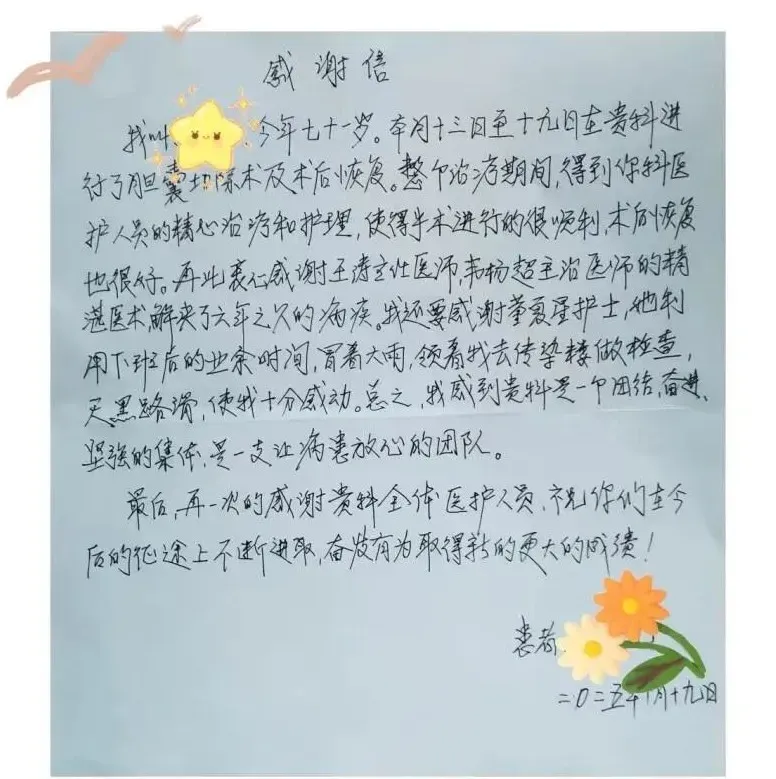 感谢信
我叫 今年七十一岁。本月十三日至十九日在贵科进
行了胆囊切除术及术后恢复。整个治疗期间,得到你科医
护人员的精心治疗和护理,使得手术进行的很顺利,术后恢复
也很好。再此衷心感谢王涛主任医师,韦杨超主治医师的精
湛医术解决了六年之久的病疾。我还要感谢董夏星护士,她利
用下班后的业余时间,冒着大雨,领着我去传染楼做检查,
天黑路滑,使我十分感动。总之,我感到贵科是一个团结,奋进、
坚强的集体,是一支让病患放心的团队。
最后,再一次的感谢贵科全体医护人员、祝你们在今
后的征途上不断进取,奋发有为取得新的更大的成绩!
患者
二〇二五年 月十九日